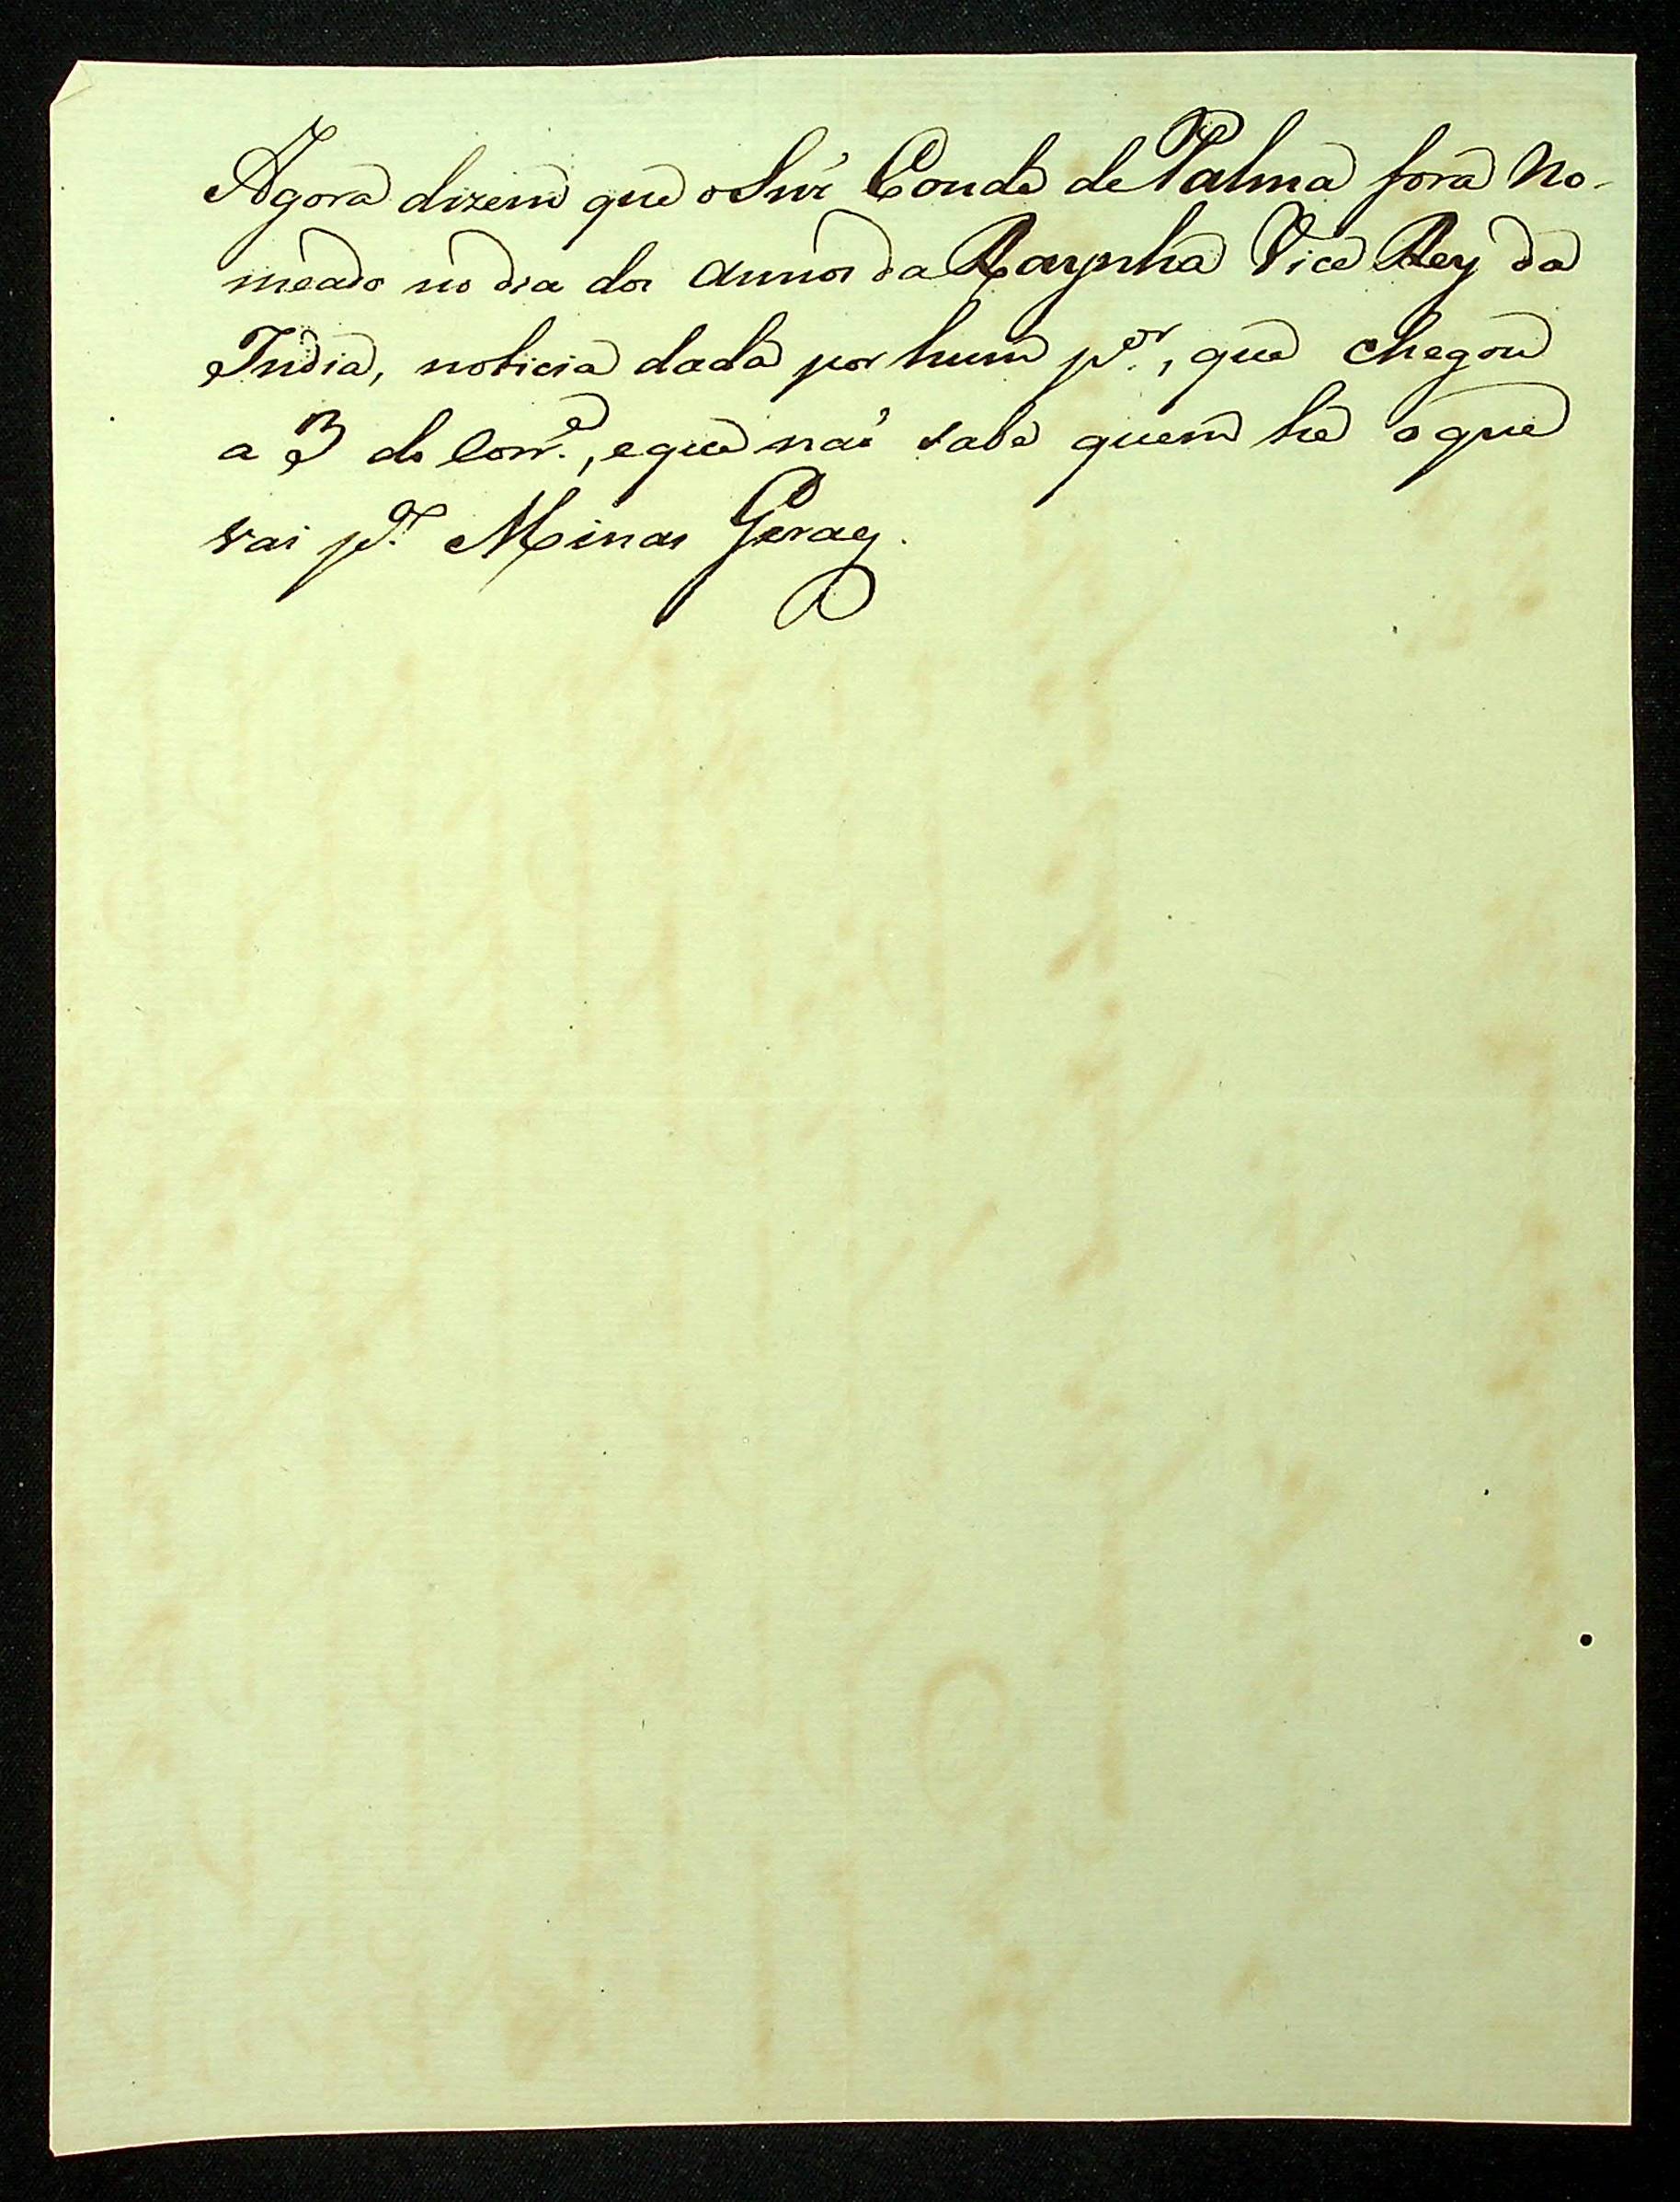 Agora dizem que o Snr̃ Conde de Palma fora No-
meado no dia dos annos da Raynha Vice Rey da
India, noticia dada por hum p.or, que chegou
a 3 do Corr.e, e que naõ sabe quem he o que
vai p.a Minas Geraes.